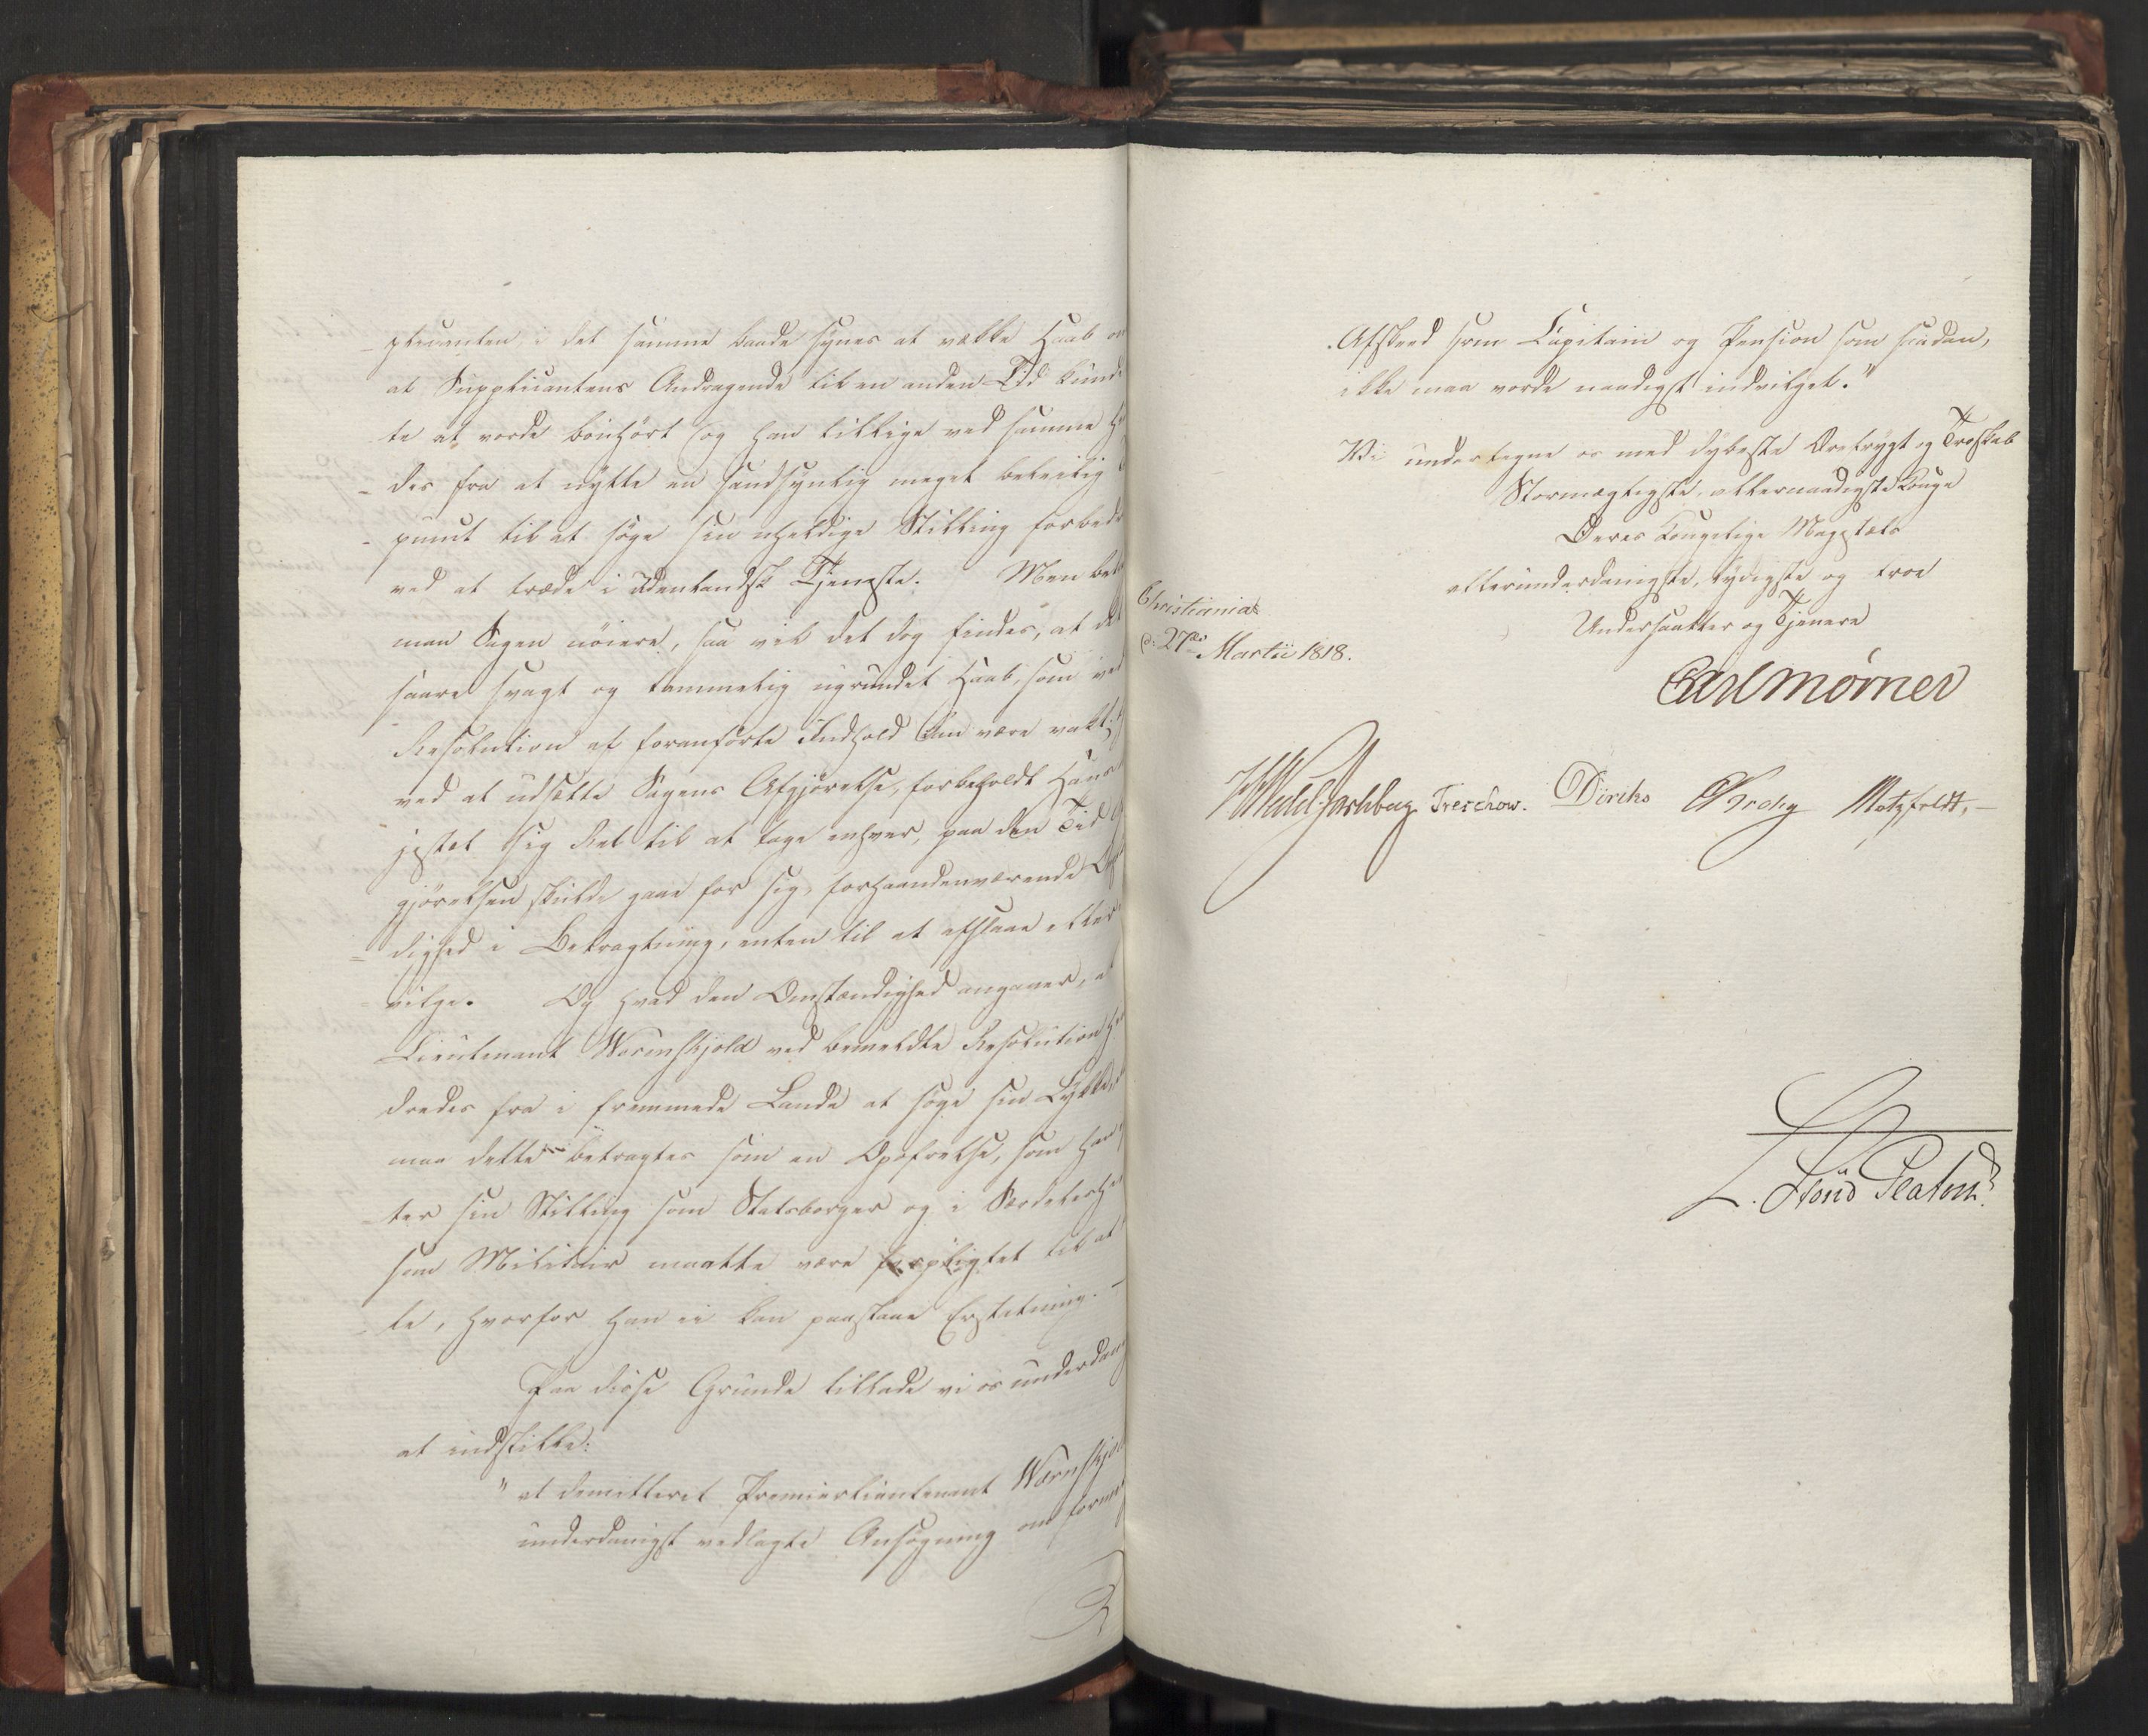 -plicanten, i det samme baade synes at vække Haab om
at Supplicantens Andragende til en anden Tid kunde
te at vorde bönhört og han tillige ved samme
des fra at nytte en sandsynlig meget beleilig
-punct til at söge sin uheldige Stilling forbedr
ved at træde i udenlandsk Tjeneste. Men
man Sagen nöiere, saa vil det dog findes, at det
saare svagt og temmelig ugrundet Haab, som ved
Resolution af foranförte Indhold kan være vakt,
ved at udsætte Sagens Afgjörelse, forbeholdt Hans
jestæt sig Ret til at tage enhver, paa den Tid
gjörelsen skulde gaae for sig, forhaandenværende
=dighed i Betragtning, enten til at afslaae eller
-vilge. Og hvad den Omstændighed angaaer, at
Lieutenant Wormskjold ved bemeldte Resolution
dredes fra i fremmede Lande at söge sin Lykke,
maa dette betragtes som en Opofrelse, som han
-ter sin Stilling som Statsborger og i Særdeleshed
som Militair maatte være forpligtet til at
-te, hvorfor han ei kan paastaae Erstatning. -
Paa disse Grunde tillade vi os underdan
at indstille:
"at demitteret Premierlieutenant Wormskjol
underdanigst vedlagte Ansögning om
Afskeed som Capitain og Pension som saadan,
ikke maa vorde naadigst indvilget."
Vi undertegne os med dybeste Ærefrygt og Troskab
Stormægtigste, allernaadigste Konge
Deres Kongelige Majestæts
allerunderdanigste, lydigste og troe
Undersaatter og Tjenere
Christiania
d: 27de Martii 1818.
Carl Mörner
Treschow. Diriks Krog Motzfeldt,
L.